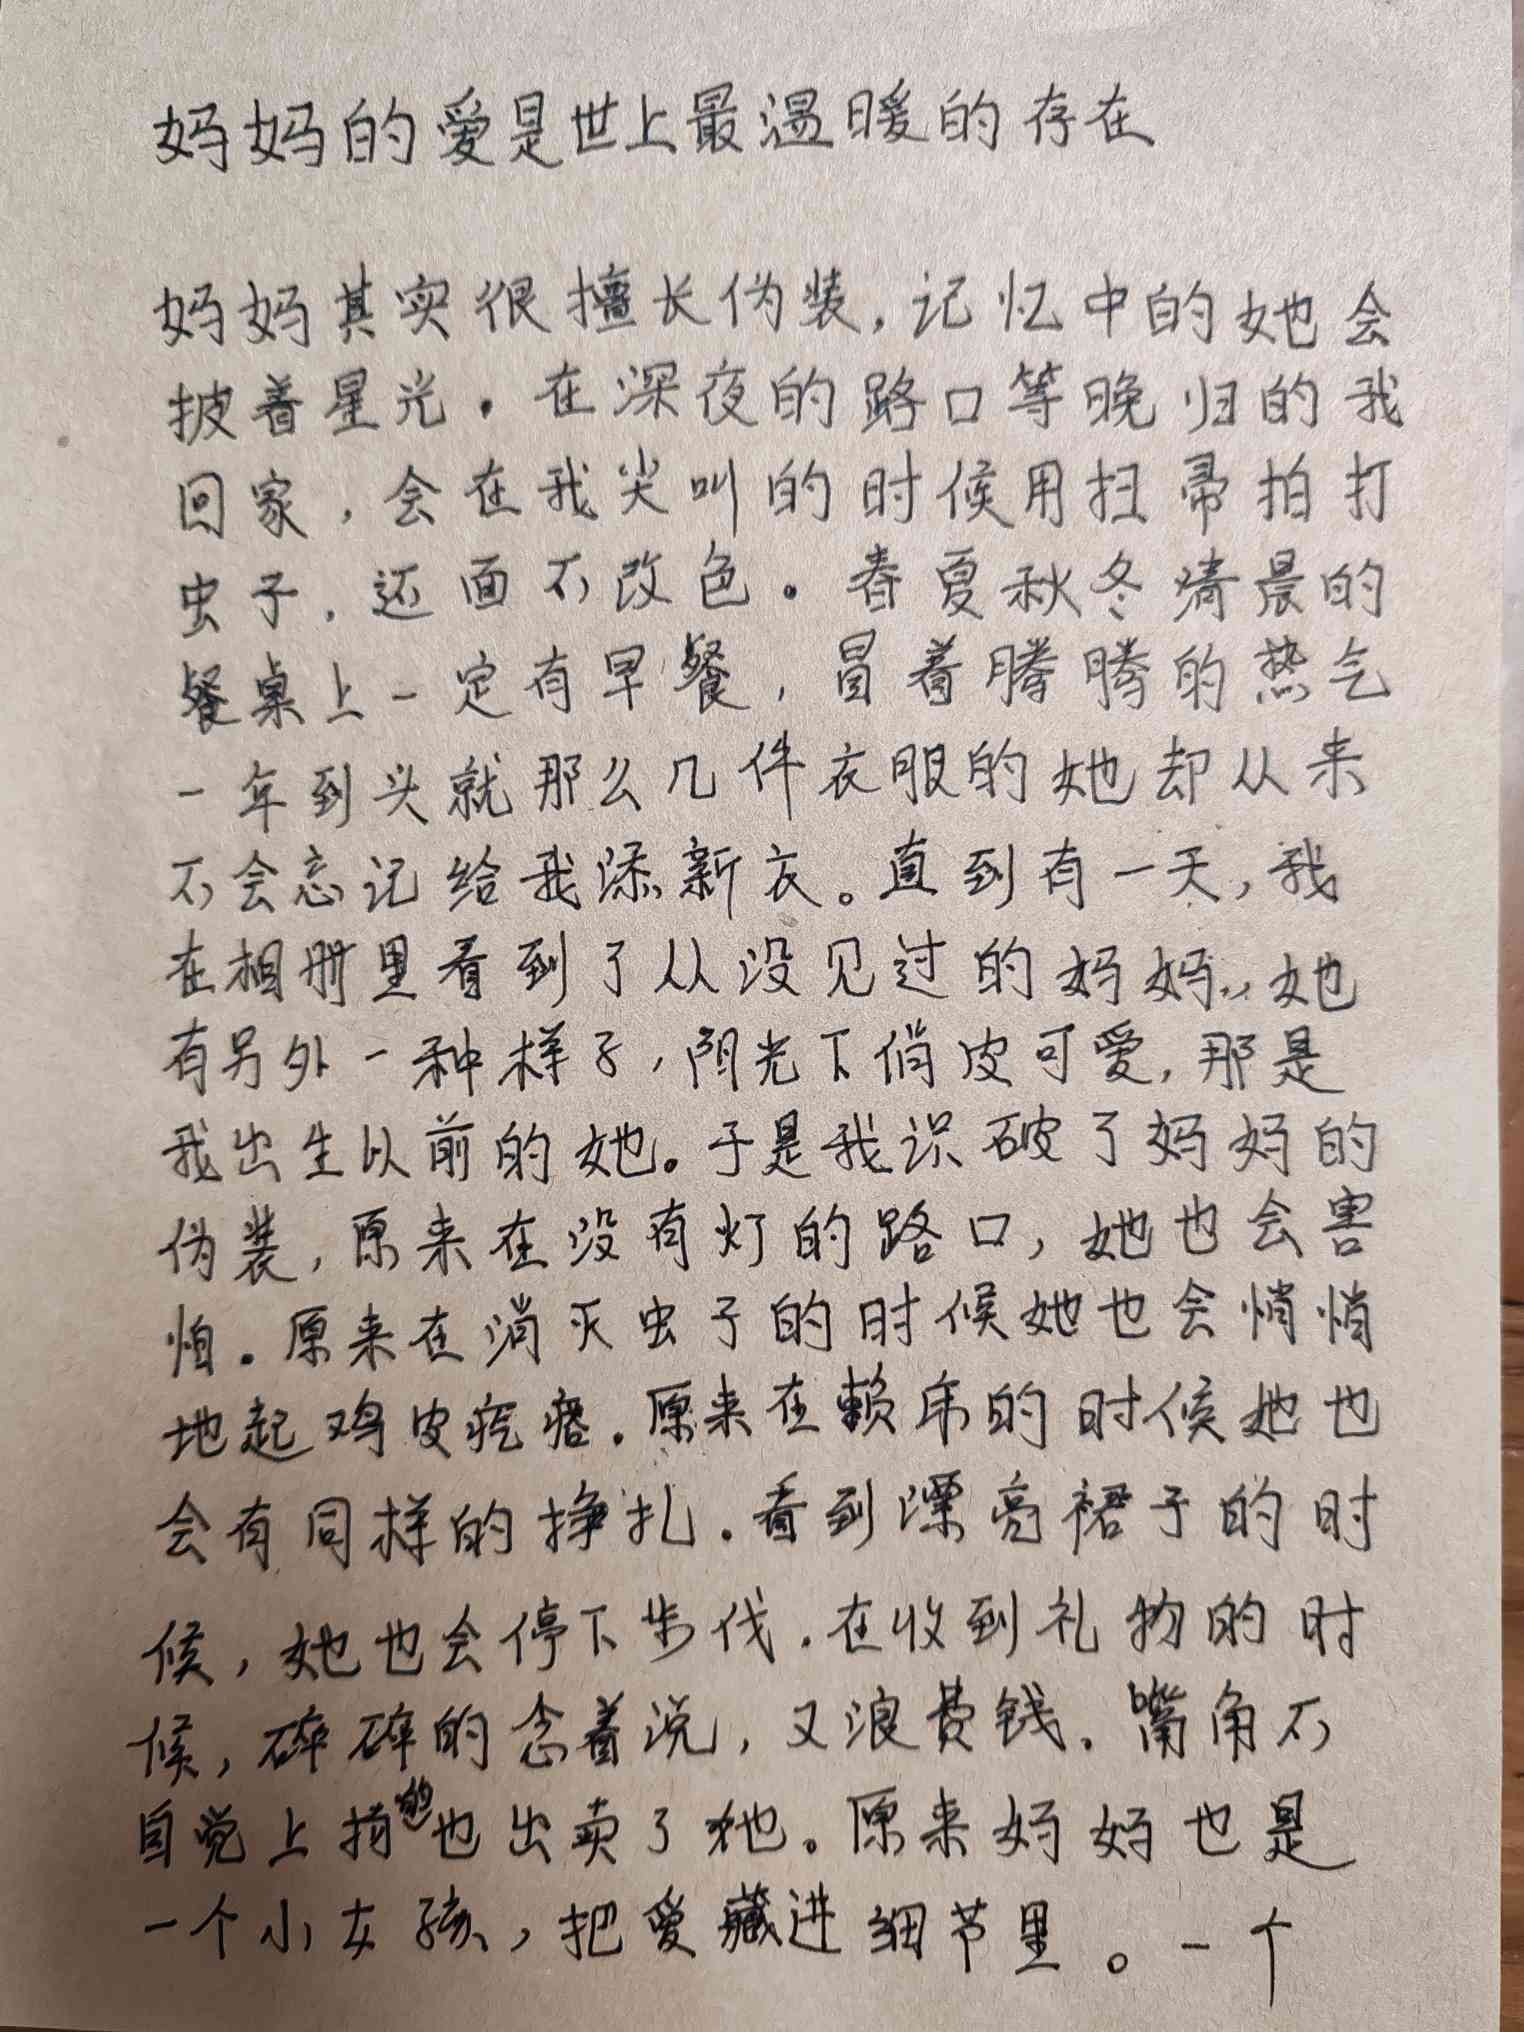 妈妈的爱是世上最温暖的存在
妈妈其实很擅长伪装,记忆中的她会
披着星光。在深夜的路口等晚归的我
回家,会在我尖叫的时候用扫帚拍打
虫子,还面不改色。春夏秋冬清晨的
餐桌上一定有早餐,冒着腾腾的热气
一年到头就那么几件衣服的她却从来
不会忘记给我添新衣。直到有一天,我
在相册里看到了从没见过的妈妈,她
有另外一种样子,阳光下俏皮可爱,那是
我出生以前的她。于是我识破了妈妈的
伪装,原来在没有灯的路口,她也会害
怕。原来在消灭虫子的时候她也会悄悄
地起鸡皮疙瘩。原来在赖床的时候她也
会有同样的挣扎。看到漂亮裙子的时
候,她也会停下步伐。在收到礼物的时
候,碎碎的念着说,又浪费钱。嘴角不
自觉上扬的也出卖了她。原来妈妈也是
一个小女孩,把爱藏进细节里。一个